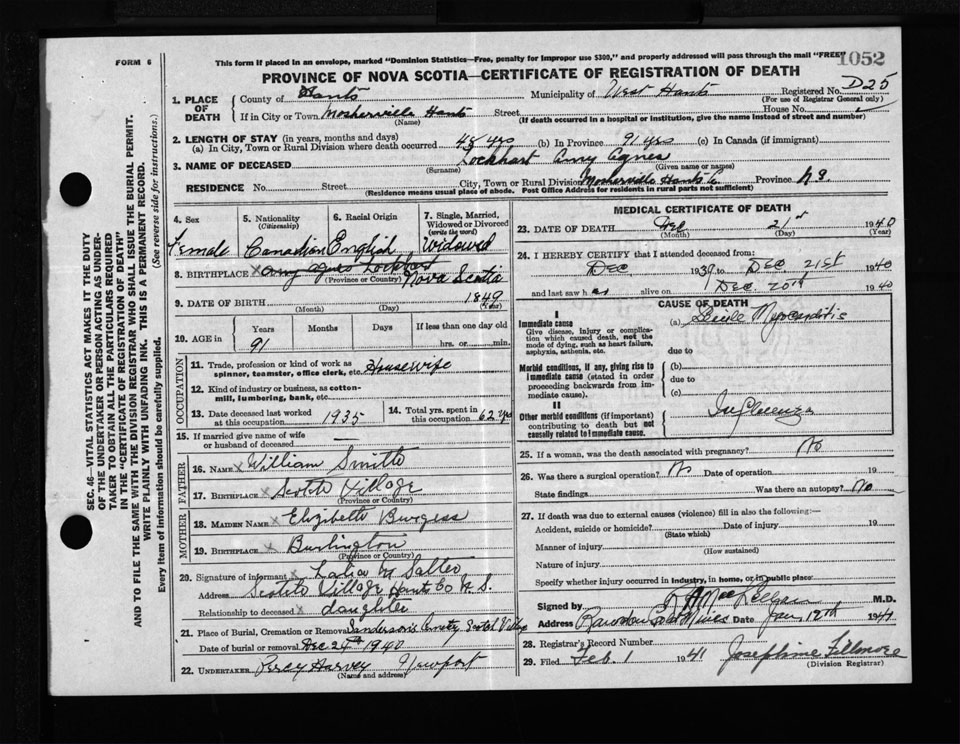 FORM 6
This form if placed in an envelope, marked "Dominion Statistics—Free, penalty for improper use $300," and properly addressed will pass through the mail "FREE"
1052
PROVINCE OF NOVA SCOTIA—CERTIFICATE OF REGISTRATION OF DEATH
D25
1. PLACE OF DEATH
County of Hants Municipality of West Hants Registered No.
(For use of Registrar General only)
If in City or Town Mosherville Hants Street House No.
(Name) (If death occurred in a hospital or institution, give the name instead of street and number)
2. LENGTH OF STAY (in years, months and days)
(a) In City, Town or Rural Division where death occurred 45 yrs (b) In Province 91 yrs (c) In Canada (if immigrant)
3. NAME OF DECEASED Lockhart Amy Agnes
(Surname) (Given name or names)
RESIDENCE No. Street City, Town or Rural Division Mosherville Hants Co Province N S
(Residence means usual place of abode. Post Office Address for residents in rural parts not sufficient)
4. Sex Female
5. Nationality (Citizenship) Canadian
6. Racial Origin English
7. Single, Married, Widowed or Divorced (write the word) Widowed
8. BIRTHPLACE Amy Agnes Lockhart Nova Scotia
(Province or Country)
9. DATE OF BIRTH 1849
(Month) (Day) (Year)
10. AGE in Years Months Days If less than one day old
91 hrs. or min.
OCCUPATION
11. Trade, profession or kind of work as spinner, teamster, office clerk, etc. Housewife
12. Kind of industry or business, as cotton-mill, lumbering, bank, etc.
13. Date deceased last worked at this occupation 1935
14. Total yrs. spent in this occupation 62 yrs
15. If married give name of wife or husband of deceased —
FATHER
16. NAME William Smith
17. BIRTHPLACE Scotch Village
(Province or Country)
MOTHER
18. MAIDEN NAME Elizabeth Burgess
19. BIRTHPLACE Burlington
(Province or Country)
20. Signature of informant Salter
Address Scotch Village Hants Co N. S.
Relationship to deceased daughter
21. Place of Burial, Cremation or Removal Sanderson's Scotch Village
Date of burial or removal Dec 24th 1940
22. UNDERTAKER Percy Harvey Newport
(Name and address)
MEDICAL CERTIFICATE OF DEATH
23. DATE OF DEATH Dec 21st 1940
(Month) (Day) (Year)
24. I HEREBY CERTIFY that I attended deceased from:
Dec 1939 to Dec. 21st 1940
and last saw h er alive on Dec. 20th 1940
CAUSE OF DEATH
I
Immediate cause
Give disease, injury or complication which caused death, not the mode of dying, such as heart failure, asphyxia, asthenia, etc.
(a) Senile Myocarditis
due to
Morbid conditions, if any, giving rise to immediate cause (stated in order proceeding backwards from immediate cause).
(b)
due to
(c)
II
Other morbid conditions (if important) contributing to death but not causally related to immediate cause.
Influenza
25. If a woman, was the death associated with pregnancy? No
26. Was there a surgical operation? No Date of operation 19
State findings Was there an autopsy? No
27. If death was due to external causes (violence) fill in also the following:—
Accident, suicide or homicide? Date of injury 19
(State which)
Manner of injury
(How sustained)
Nature of injury
Specify whether injury occurred in industry, in home, or in public place
Signed by MacLellan M.D.
Address Rawdon Gold Mines Date Jan 12th 1941
28. Registrar's Record Number
29. Filed Feb. 1 1941 Josephine Fillmore
(Division Registrar)
SEC. 46—VITAL STATISTICS ACT MAKES IT THE DUTY
OF THE UNDERTAKER OR PERSON ACTING AS UNDER-
TAKER TO OBTAIN ALL THE PARTICULARS REQUIRED
IN THE "CERTIFICATE OF REGISTRATION OF DEATH"
AND TO FILE THE SAME WITH THE DIVISION REGISTRAR WHO SHALL ISSUE THE BURIAL PERMIT.
WRITE PLAINLY WITH UNFADING INK. THIS IS A PERMANENT RECORD.
Every item of information should be carefully supplied. (See reverse side for instructions.)